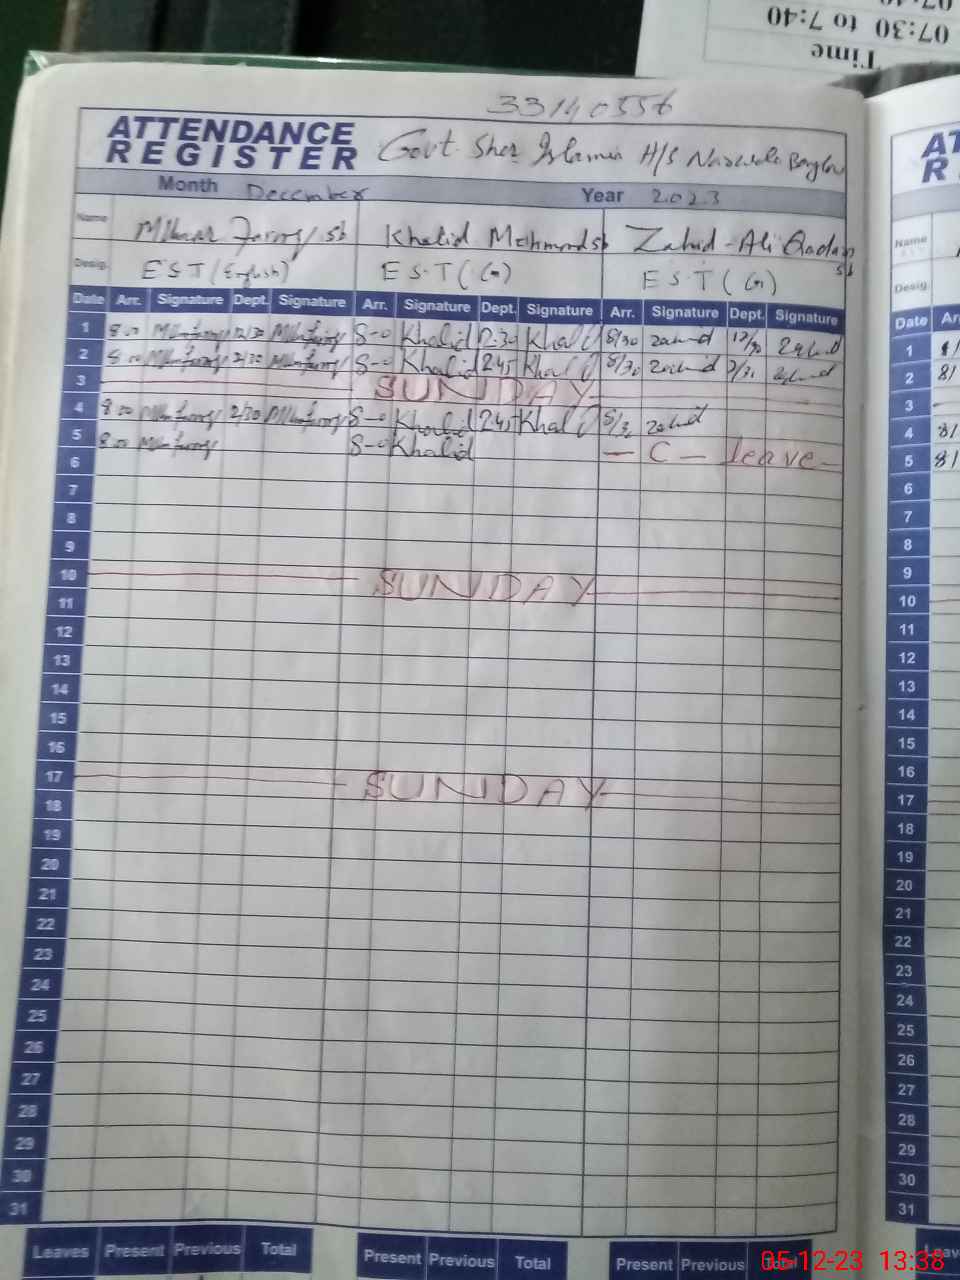 Time
07:30 to 7:40
33140556
ATTENDANCE
REGISTER
Govt. Sher Islamia H/S
Month December Year 2023
Name Khalid Mehmood sb Zahid-Ali
Desig. E S T (English) E S.T (G) E S.T (G)
Date Arr. Signature Dept. Signature Arr. Signature Dept. Signature Arr. Signature Dept. Signature
1 8:00 12/30 8-0 Khalid 12:30 Khalid 8/30 zahid 12/30 zahid
2 8:00 2/30 8-0 Khalid 2:45 Khalid 8/30 zahid 2/30 zahid
3 SUNDAY
4 8:00 2/30 8-0 Khalid 2:45 Khalid 8/30 zahid
5 8:00 8-0 Khalid — C — leave —
6
7
8
9
10 SUNDAY
11
12
13
14
15
16
17 SUNDAY
18
19
20
21
22
23
24
25
26
27
28
29
30
31
Leaves Present Previous Total Present Previous Total Present Previous Total
Name
Desig.
Date
1
2 8/
3
4 8/
5 8/
6
7
8
9
10
11
12
13
14
15
16
17
18
19
20
21
22
23
24
25
26
27
28
29
30
31
05-12-23 13:38